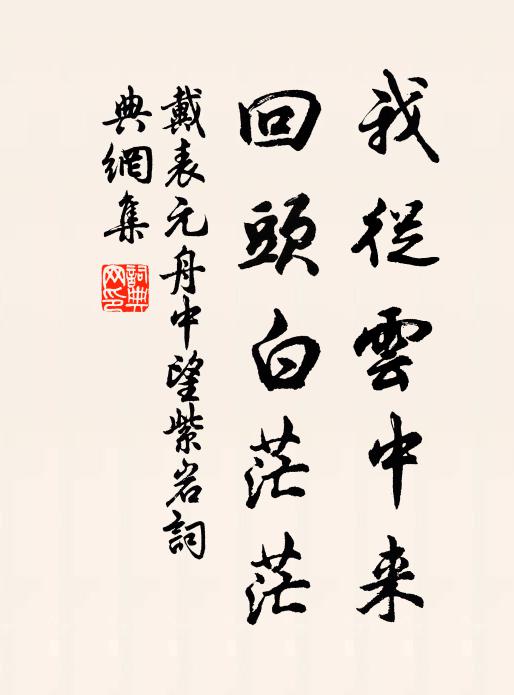 我從雲中来
回頭白茫茫
戴表元舟中望紫岩詞
典網集
詞典
网印